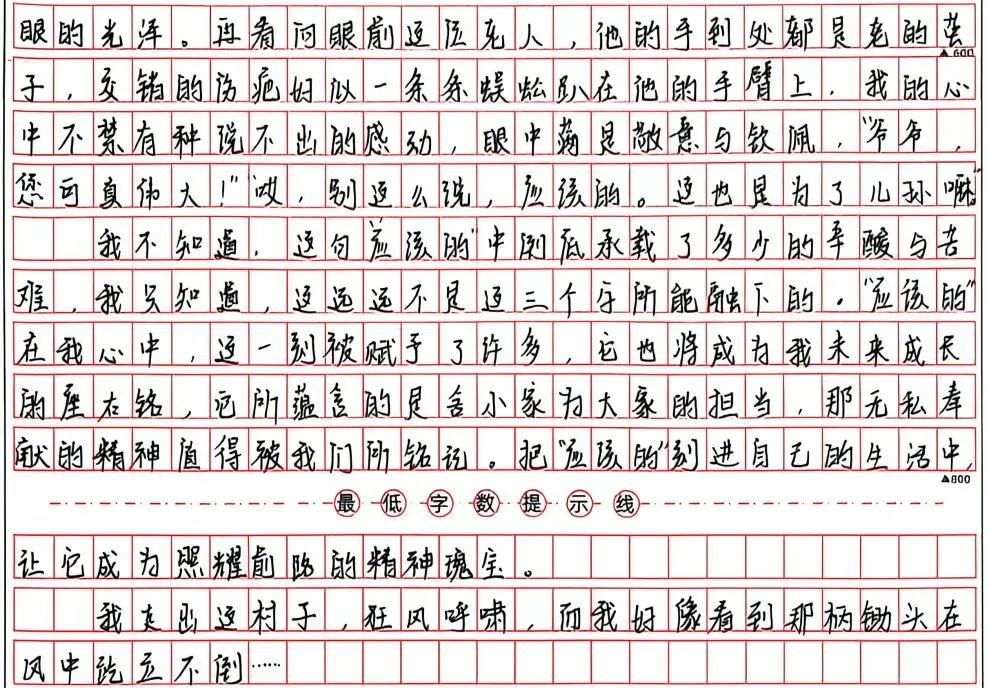 眼的光泽。再看向眼前这位老人，他的手到处都是老的茧
▲600
子，交错的伤疤好似一条条蜈蚣趴在他的手臂上，我的心
中不禁有种说不出的感动，眼中满是敬意与钦佩，“爷爷，
您可真伟大！”“哎，别这么说，应该的。这也是为了儿孙嘛”
我不知道，这句“应该的”中到底承载了多少的辛酸与苦
难，我只知道，这远远不是这三个字所能融下的。“应该的”
在我心中，这一刻被赋予了许多，它也将成为我未来成长
的座右铭，它所蕴含的是舍小家为大家的担当，那无私奉
献的精神值得被我们所铭记。把“应该的”刻进自己的生活中，
▲800
最低字数提示线
让它成为照耀前路的精神瑰宝。
我走出这村子，狂风呼啸，而我好像看到那柄锄头在
风中屹立不倒……